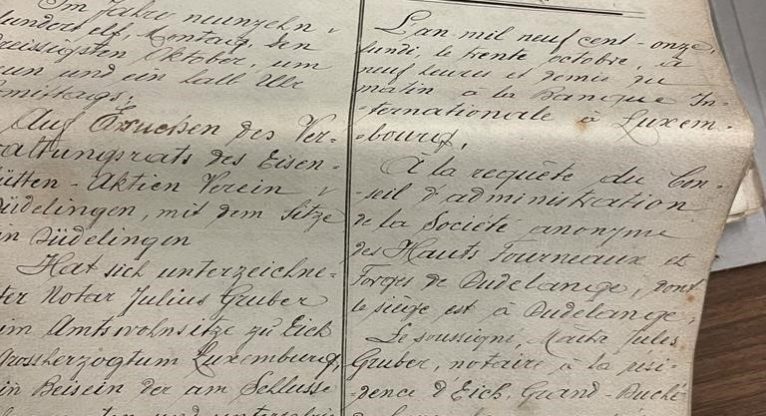 Im Jahre neunzehn
hundert elf, Montag, den
dreissigsten Oktober, um
neun und ein halb Uhr
Auf Ersuchen des Ver-
waltungsrats des Eisen-
hütten-Aktien Verein
Düdelingen, mit dem Sitze
in Düdelingen
Hat sich unterzeichne-
ter Notar Julius Gruber
im Amtswohnsitze zu Eich
Grossherzogtum Luxemburg,
in Beisein der am Schlusse
und
L'an mil neuf cent-onze,
lundi, le trente octobre, à
neuf heures et demie du
matin à la Banque In-
-ternationale à Luxem-
-bourg,
À la requête du Con-
-seil d'administration
de la Société anonyme
des Hauts Fourneaux et
Forges de Dudelange, dont
le siège est à Dudelange,
Le soussigné, Maître Jules
Gruber, notaire à la rési-
-dence d'Eich, Grand-Duché